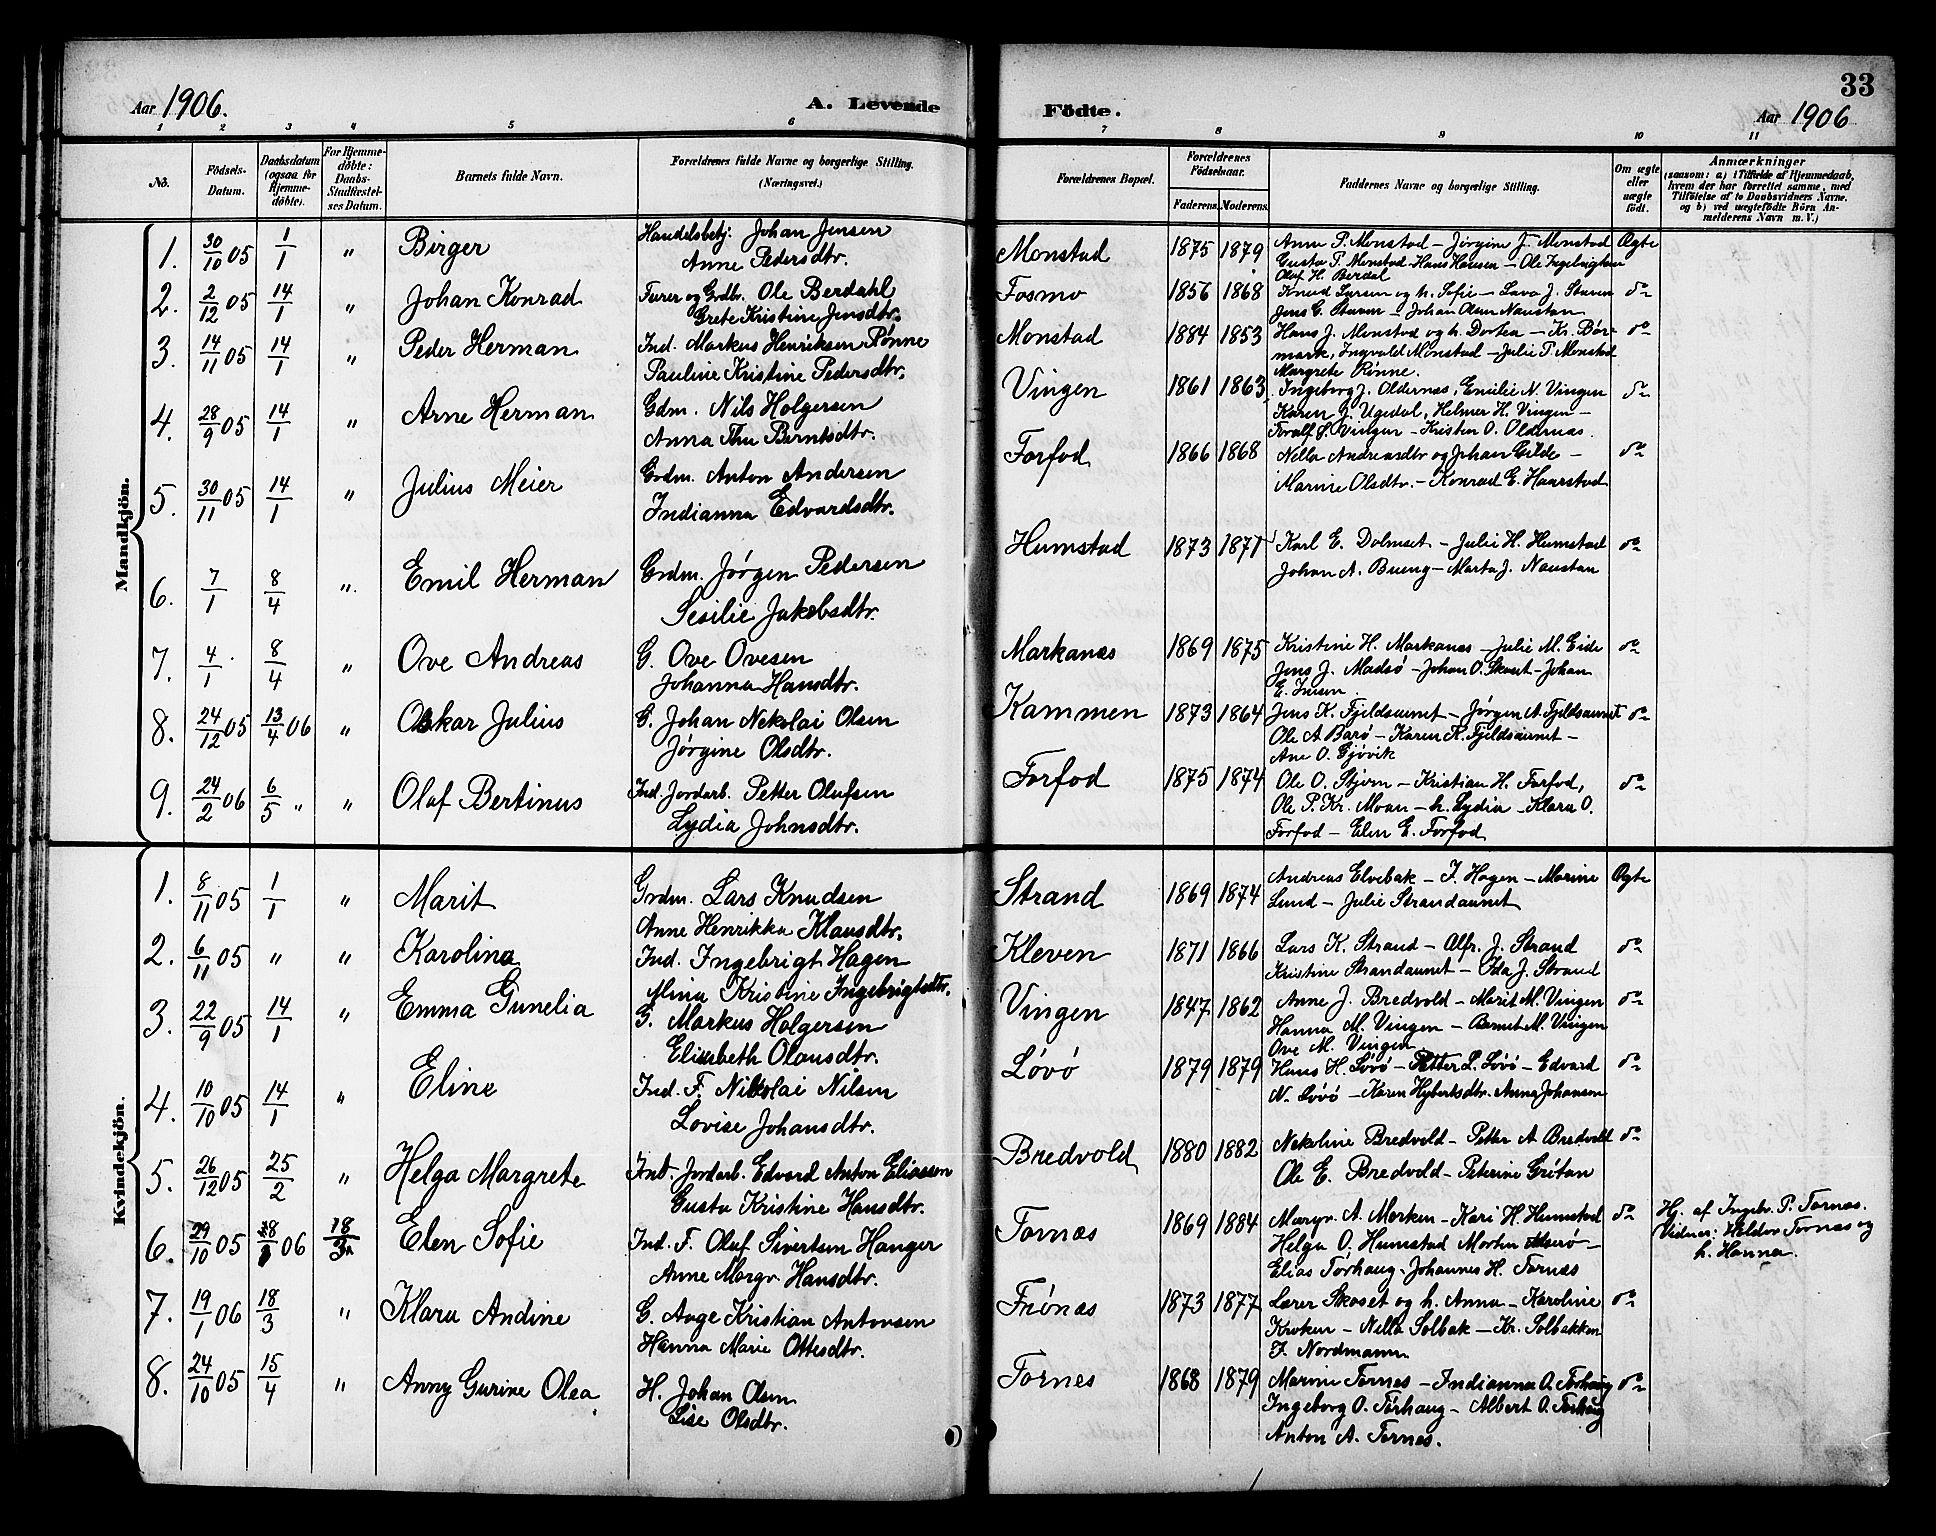 Aar 1906. A. Levende Födte. Aar 1906 33
1 2 3 4 5 6 7 8 9 10 11
No. Födsels-Datum. Daabsdatum (ogsaa for Hjemme-döbte). For Hjemme-döbte: Daabs-Stadfæstel-ses Datum. Barnets fulde Navn. Forældrenes fulde Navne og borgerlige Stilling. (Næringsvei.) Forældrenes Bopæl. Forældrenes Födselsaar. Faderens. Moderens. Faddernes Navne og borgerlige Stilling. Om ægte eller uægte födt. Anmærkninger (saasom: a) i Tilfælde af Hjemmedaab, hvem der har forrettet samme, med Tilföielse af to Daabsvidners Navne, og b) ved uægtefödte Börn An-melderens Navn m. V.)
Mandkjön.
1. 30/10 05 1/1 " Birger Handelsbetj. Johan Jensen
Anne Pedersdtr. Monstad 1875 1879 Anne P. Monstad – Jørgine J. Monstad Ægte
Gusta P. Monstad – Hans Hansen – Ole Ingebrigtsen
Olaf H. Berdal
2. 2/12 05 14/1 " Johan Konrad Furer og Grdbr. Ole Berdahl
Grete Kristine Jensdtr. Fosmo 1856 1868 Knud Larsen og h. Sofie – Lava J. Staven do
Jens G. Staven – Johan Olsen Naustan
3. 14/11 05 14/1 " Peder Herman Ind. Markus Henriksen Rønne
Pauline Kristine Pedersdtr. Monstad 1884 1853 Hans J. Monstad og h. Dortea – Kr. Bör- do
mark, Ingvald Monstad – Julie P. Monstad
Margrete Rønne.
4. 28/9 05 14/1 " Arne Herman Gdm. Nils Holgersen
Anna Thu Berntsdtr. Vingen 1861 1863 Ingeborg J. Oldernæs, Emilie N. Vingen do
Karen J. Ugedal, Helmer H. Vingen –
Toralf S. Vingen – Kristen O. Oldernæs.
5. 30/11 05 14/1 " Julius Meier Grdm. Anton Andersen
Indianna Edvardsdtr. Forfod 1866 1868 Nella Andreasdtr og Johan Gilde – do
Marine Olsdtr. – Konrad E. Haarstad
6. 7/1 8/4 " Emil Herman Grdm. Jørgen Pedersen
Sesilie Jakobsdtr. Humstad 1873 1871 Karl E. Dolmset – Julie H. Humstad do
Johan A. Bueng – Marta J. Naustan
7. 4/1 8/4 " Ove Andreas G. Ove Ovesen
Johanna Hansdtr. Markanæs 1869 1875 Kristine H. Markanæs – Julie M. Eide do
Jens J. Madsø – Johan O. Skoset – Johan
E. Iversen.
8. 24/12 05 13/4 06 " Oskar Julius G. Johan Nekolai Olsen
Jørgine Olsdtr. Kammen 1873 1864 Jens K. Fjeldsaunet – Jørgen A. Fjeldsaunet do
Ole A Barø – Karen K. Fjeldsaunet –
Ane O. Gjövik
9. 24/2 06 6/5 " " Olaf Bertinus Ind. Jordarb. Petter Olufsen
Lydia Johnsdtr. Forfod 1875 1874 Ole O. Stjörn – Kristian H. Forfod, do
Ole P. Kr. Moan – h. Lydia – Klara O.
Forfod – Elen E. Forfod
Kvindekjön.
1. 8/11 05 1/1 " Marit Grdm. Lars Knudsen
Anne Henrikka Klausdtr. Strand 1869 1874 Andreas Elvebak – I. Hagen – Marine Ægte
Lund – Julie Strandaunet
2. 6/11 05 " " Karolina Ind. Ingebrigt Hagen
Mina Kristine Ingebrigtsdtr. Kleven 1871 1866 Lars K. Strand – Alfr. J. Strand do
Kristine Strandaunet – Ida J. Strand
3. 22/9 05 14/1 " Emma Gunelia G. Markus Holgersen
Elisebeth Olausdtr. Vingen 1847 1862 Anne J. Bredvold – Marit M. Vingen do
Hanna M. Vingen – Bernt M. Vingen
Ove M. Vingen
4. 10/10 05 14/1 " Eline Ind. F. Nikolai Nilsen
Lovise Johansdtr. Lövö 1879 1879 Hans H. Lövö – Petter L. Lövö – Edvard do
N. Lövö – Karen Hybertsdtr. Anna Johansen
5. 26/12 05 25/2 " Helga Margrete Ind. Jordarb. Edvard Anton Eliassen
Gusta Kristine Hansdtr. Bredvold 1880 1882 Nekoline Bredvold – Petter A Bredvold do
Ole E. Bredvold – Peterine Grötan
6. 29/10 05 06 18/3 Elen Sofie Ind. F. Oluf Sivertsen Hanger
Anne Margr. Hansdtr. Tornæs 1869 1884 Margr. A. Morken – Kari H. Humstad do Hj. af Ingebr. P. Tornæs.
Helga O. Humstad Morten – Vidner: Haldor Tornæs og
Elias Torhaug – Johannes H. Tornæs h. Hanna.
7. 19/1 06 18/3 " Klara Andine G. Aage Kristian Antonsen
Hanna Marie Ottesdtr. Frönæs 1873 1877 Lærer Skoset og h. Anna – Karoline do
Kroken – Nella Solbak – Kr. Solbakken
I. Nordmann
8. 24/10 05 15/4 " Anny Gurine Olea H. Johan Olsen
Lise Olsdtr. Tornes 1868 1879 Marine Tornes – Indianna O. Torhaug do
Ingeborg O. Törhaug – Albert O. Torhaug
Anton A. Tornes.